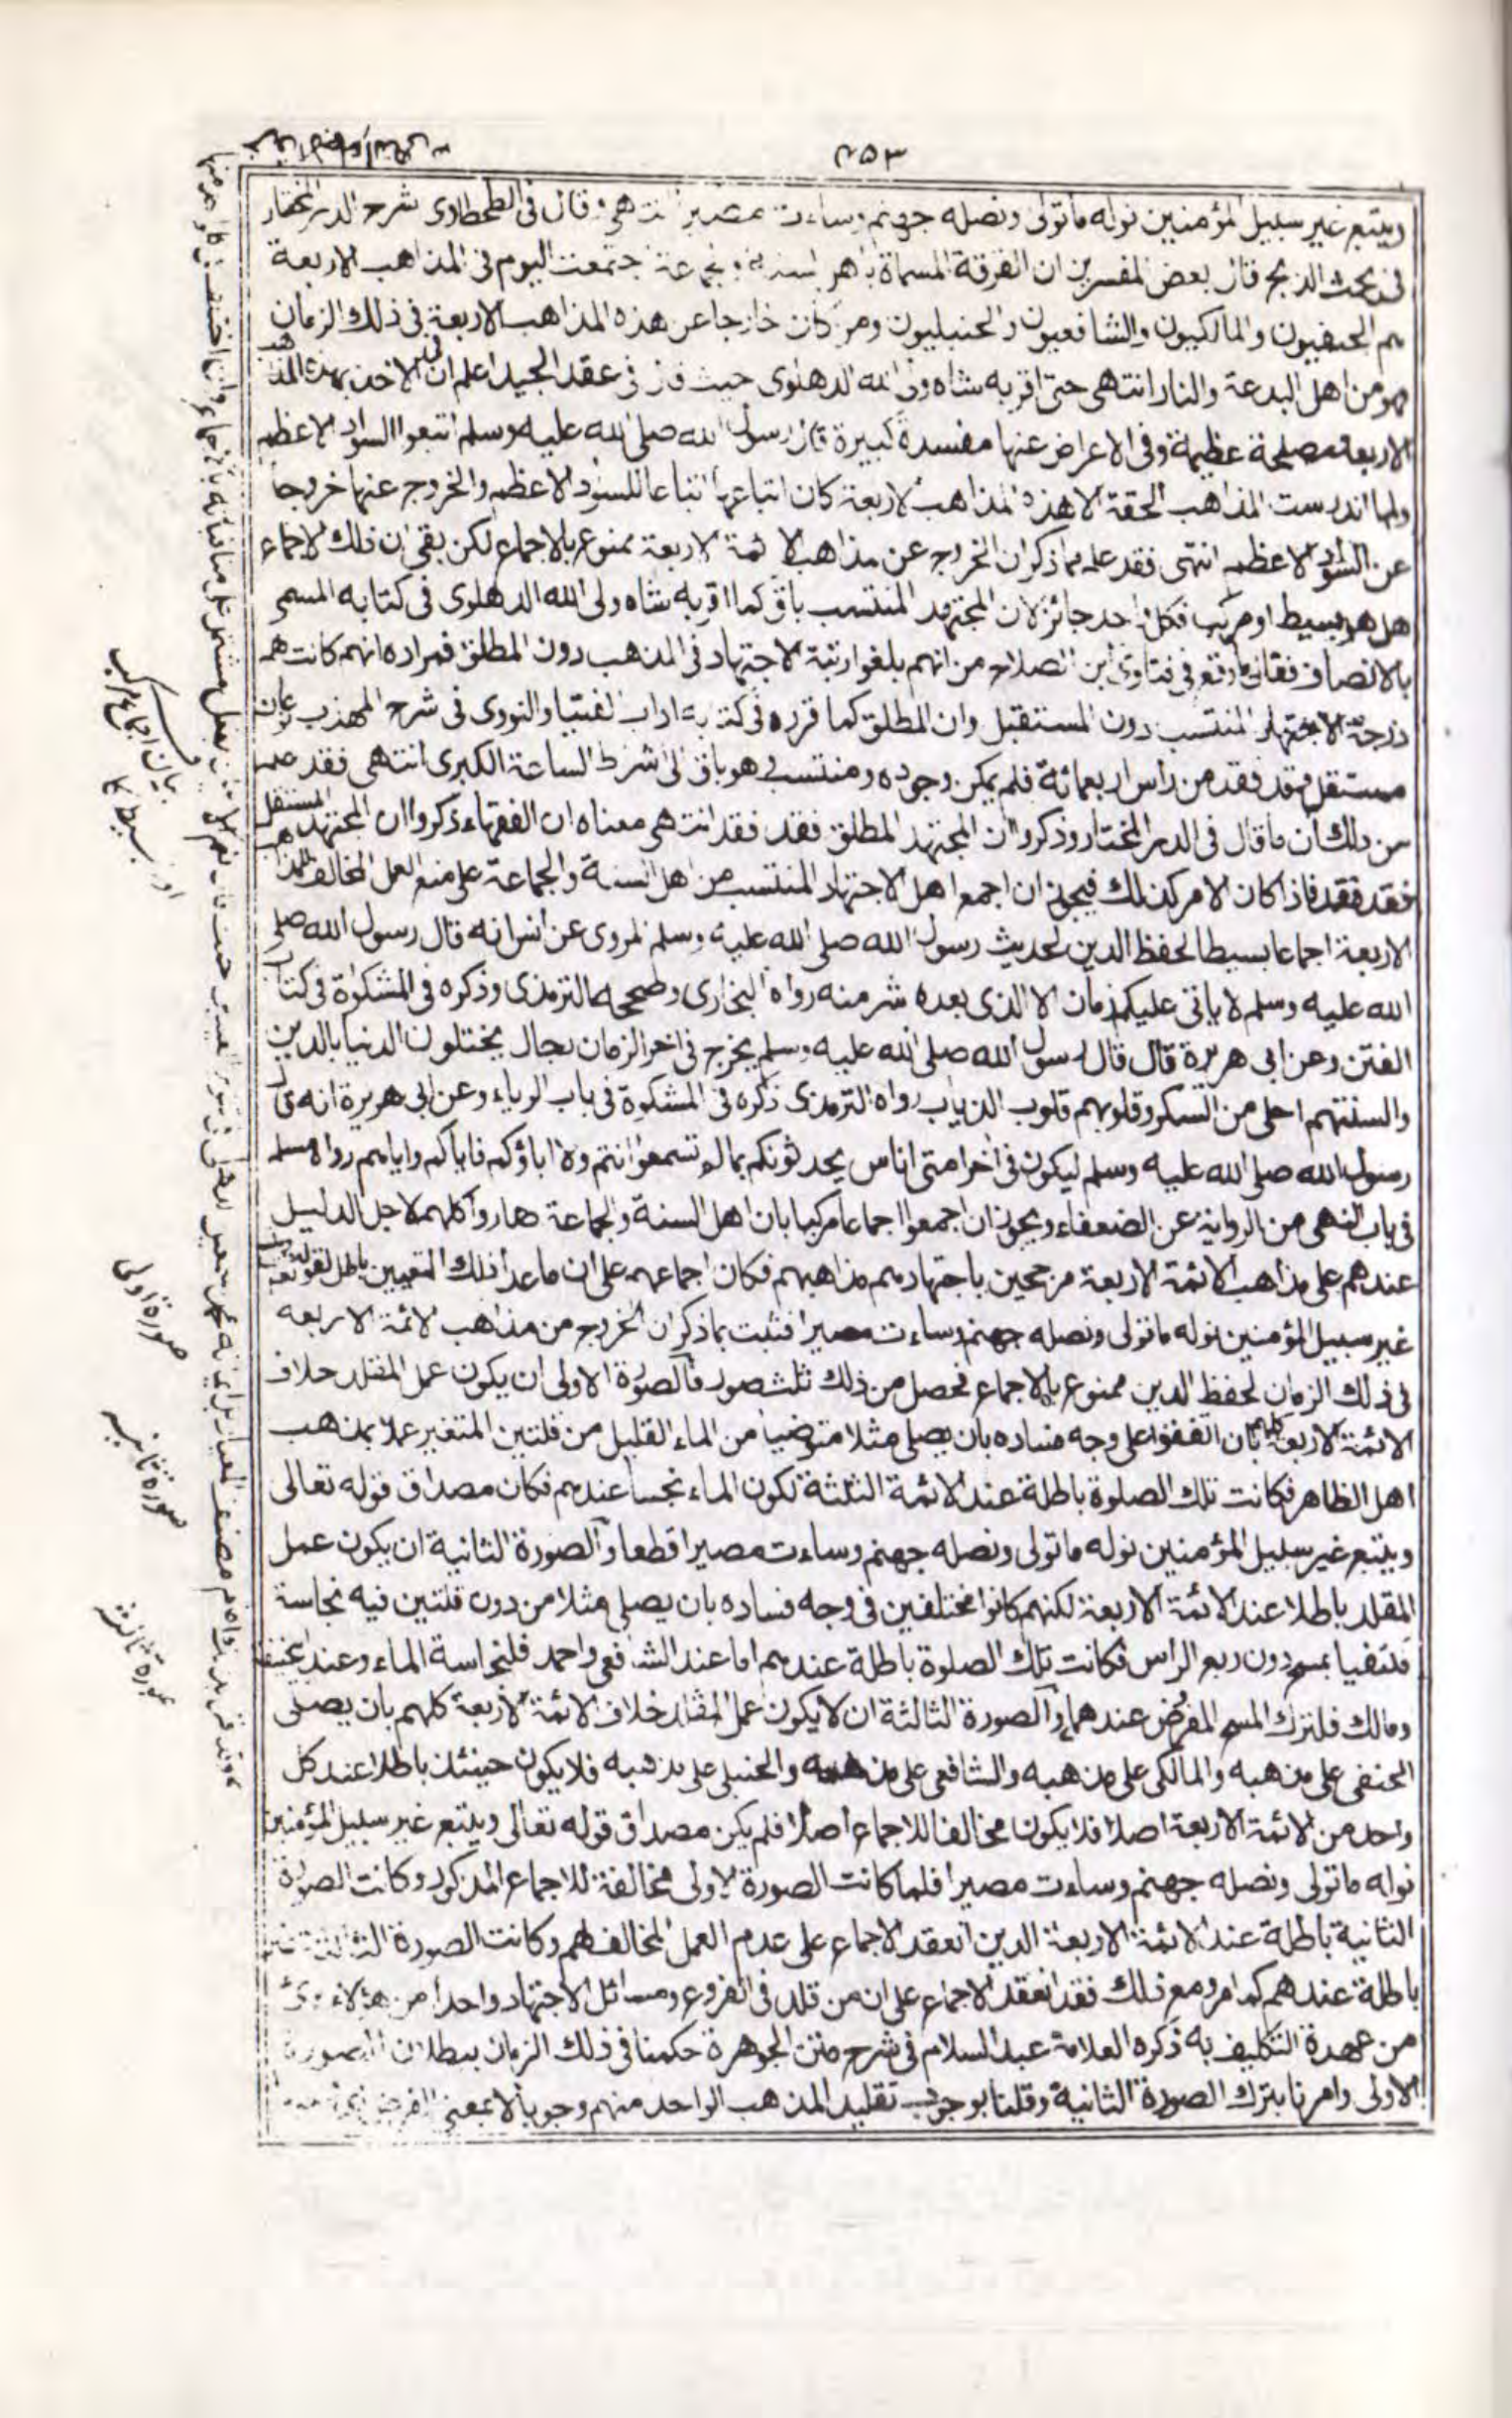 ٢٥٣
ويتبع غير سبيل المؤمنين نوله ماتولى ونصله جهنم وساءت مصيرا انتهى وقال فى الطحطاوى شرح الدر المختار
فى بحث الذبح قال بعض المفسرين ان الفرقة المسماة باهل السنة والجماعة اجتمعت اليوم فى المذاهب الاربعة
هم الحنفيون والمالكيون والشافعيون والحنبليون ومن كان خارجا عن هذه المذاهب الاربعة فى ذلك الزمان
فهو من اهل البدعة والنار انتهى حتى اقر به شاه ولى الله الدهلوى حيث قال فى عقد الجيد اعلم ان فى الاخذ بهذه المذاهب
الاربعة مصلحة عظيمة وفى الاعراض عنها مفسدة كبيرة قال رسول الله صلى الله عليه وسلم اتبعوا السواد الاعظم
ولما اندرست المذاهب الحقة الا هذه المذاهب الاربعة كان اتباعها اتباعا للسواد الاعظم والخروج عنها خروجا
عن السواد الاعظم انتهى فقد علم مما ذكر ان الخروج عن مذاهب الائمة الاربعة ممنوع بالاجماع لكن بقى ان ذلك الاجماع
هل هو بسيط او مركب فكل واحد جائز لان المجتهد المنتسب باق كما اقر به شاه ولى الله الدهلوى فى كتابه المسمى
بالانصاف فقال ما وقع فى فتاوى ابن الصلاح من انهم بلغوا رتبة الاجتهاد فى المذهب دون المطلق فمراده انهم كانت لهم
درجة الاجتهاد المنتسب دون المستقبل وان المطلق كما قرره فى كتابه اداب الفتيا والنووى فى شرح المهذب نوعان
مستقل وقد فقد من راس اربعمائة فلم يمكن وجوده ومنتسب وهو باق الى اشراط الساعة الكبرى انتهى فقد علم
من ذلك ان ما قال فى الدر المختار وذكروا ان المجتهد المطلق فقد فقد انتهى معناه ان الفقهاء ذكروا ان المجتهد المستقل
فقد فقد فاذا كان الامر كذلك فيجوز ان اجمعوا اهل الاجتهاد المنتسب من اهل السنة والجماعة على منع العمل المخالف للمذاهب
الاربعة اجماعا بسيطا لحفظ الدين لحديث رسول الله صلى الله عليه وسلم المروى عن انس انه قال رسول الله صلى
الله عليه وسلم لا ياتى عليكم زمان الا الذى بعده شر منه رواه البخارى وصححه الترمذى وذكره فى المشكوة فى كتاب
الفتن وعن ابى هريرة قال قال رسول الله صلى الله عليه وسلم يخرج فى اخر الزمان رجال يختلون الدنيا بالدين
والسنتهم احلى من السكر وقلوبهم قلوب الذياب رواه الترمذى ذكره فى المشكوة فى باب الرياء وعن ابى هريرة انه قال
رسول الله صلى الله عليه وسلم ليكون فى اخر امتى اناس يحدثونكم بما لم تسمعوا انتم ولا اباؤكم فاياكم واياهم رواه مسلم
فى باب النهى من الرواية عن الضعفاء ويجوز ان اجمعوا اجماعا مركبا بان اهل السنة والجماعة صاروا كلهم لاجل الدليل
عندهم على مذاهب الائمة الاربعة مرجحين باجتهادهم مذاهبهم فكان اجماعهم على ان ماعدا ذلك المتعيين باطل لقوله تعالى ويتبع
غير سبيل المؤمنين نوله ماتولى ونصله جهنم وساءت مصيرا فثبت بما ذكر ان الخروج من مذاهب الائمة الاربعة
فى ذلك الزمان لحفظ الدين ممنوع بالاجماع فحصل من ذلك ثلث صور فالصورة الاولى ان يكون عمل المقلد خلاف
الائمة الاربعة كلهم بان اتفقوا على وجه فساده بان يصلى مثلا متوضيا من الماء القليل من قلتين المتغير عملا بمذهب
اهل الظاهر فكانت تلك الصلوة باطلة عند الائمة الثلثة لكون الماء نجسا عندهم فكان مصداق قوله تعالى
ويتبع غير سبيل المؤمنين نوله ماتولى ونصله جهنم وساءت مصيرا قطعا والصورة الثانية ان يكون عمل
المقلد باطلا عند الائمة الاربعة لكنهم كانوا مختلفين فى وجه فساده بان يصلى مثلا من دون قلتين فيه نجاسة
مكتفيا بمسح دون ربع الراس فكانت تلك الصلوة باطلة عندهم اما عند الشافعى واحمد فلنجاسة الماء وعند ابى حنيفة
ومالك فلترك المسح المفروض عندهما والصورة الثالثة ان لا يكون عمل المقلد خلاف الائمة الاربعة كلهم بان يصلى
الحنفى على مذهبه والمالكى على مذهبه والشافعى على مذهبه والحنبلى على مذهبه فلا يكون حينئذ باطلا عند كل
واحد من الائمة الاربعة اصلا فلا يكون مخالفا للاجماع اصلا فلم يكن مصداق قوله تعالى ويتبع غير سبيل المؤمنين
نوله ماتولى ونصله جهنم وساءت مصيرا فلما كانت الصورة الاولى مخالفة للاجماع المذكور وكانت الصورة
الثانية باطلة عند الائمة الاربعة الذين انعقد الاجماع على عدم العمل المخالف لهم وكانت الصورة الثالثة غير
باطلة عندهم كما مر ومع ذلك فقد انعقد الاجماع على ان من قلد فى الفروع ومسائل الاجتهاد واحدا من هؤلاء برئ
من عهدة التكليف به ذكره العلامة عبد السلام فى شرح متن الجوهرة حكمنا فى ذلك الزمان ببطلان الصورة
الاولى وامرنا بترك الصورة الثانية وقلنا بوجوب تقليد المذهب الواحد منهم وجوبا لا بمعنى
بیان اجماع مرکب
اور بسیط کا
صورة اولى
صورة ثانيه
صورة ثالثه